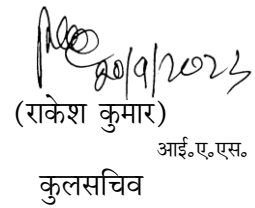 20/9/2023
(राकेश कुमार)
आई.ए.एस.
कुलसचिव